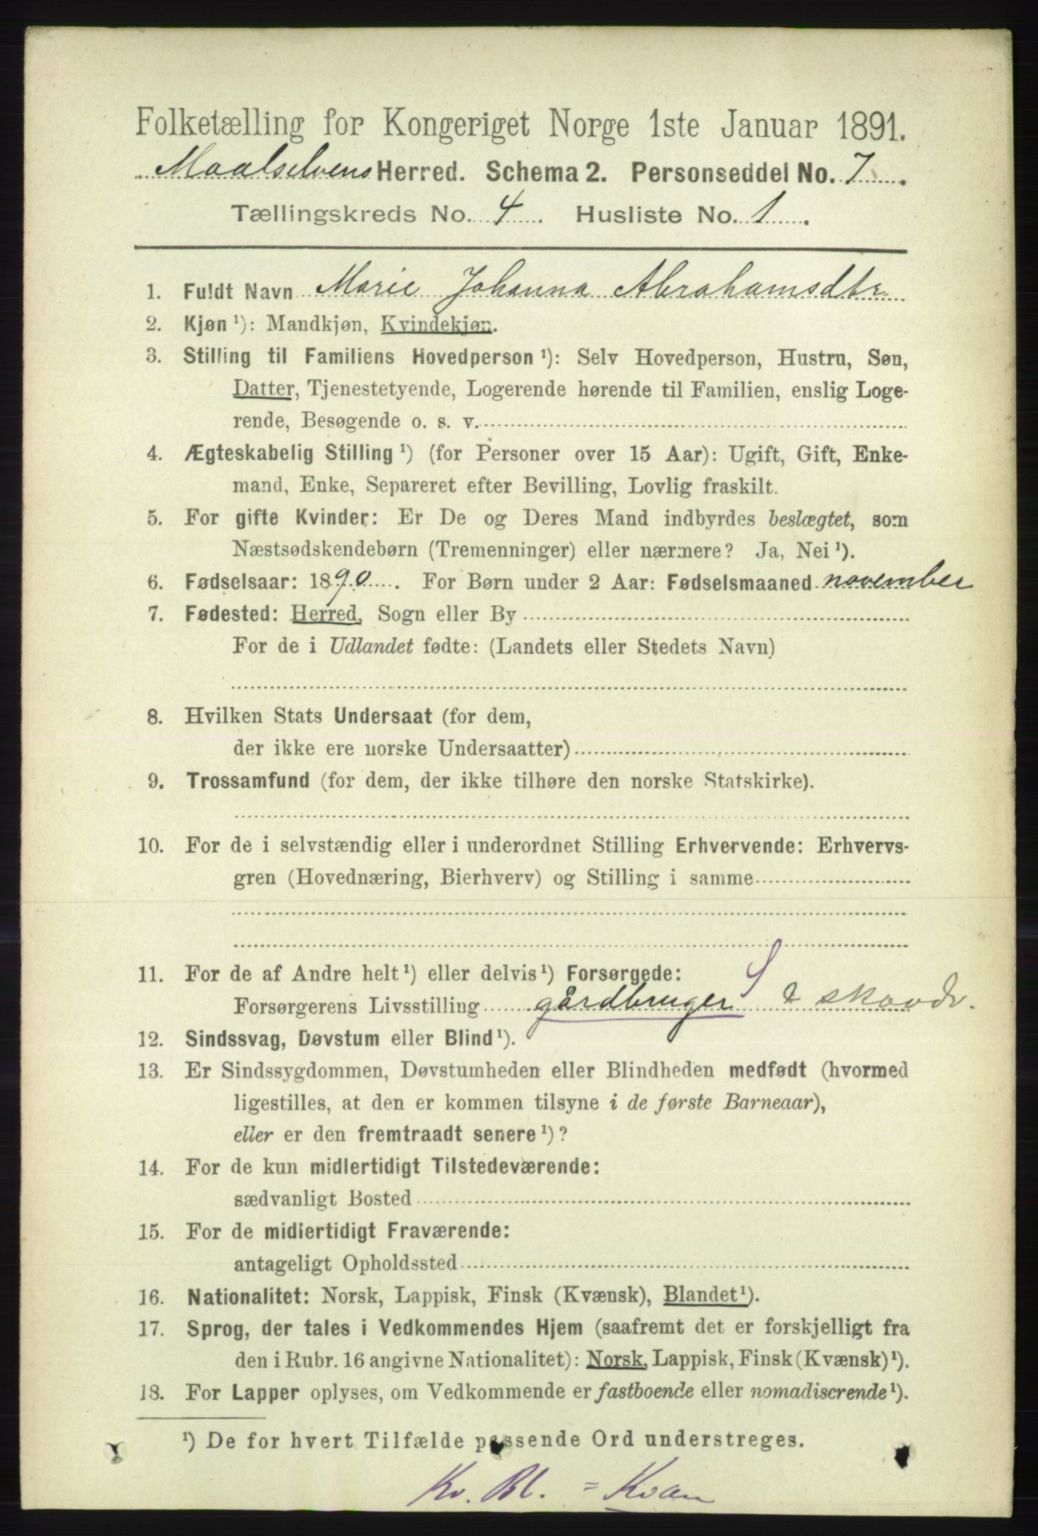 Folketælling for Kongeriget Norge 1ste Januar 1891.
Maalselvens Herred. Schema 2. Personseddel No. 7.
Tællingskreds No. 4. Husliste No. 1.
1. Fuldt Navn Marie Johanna Abrahamsdtr
2. Kjøn ¹): Mandkjøn, Kvindekjøn.
3. Stilling til Familiens Hovedperson ¹): Selv Hovedperson, Hustru, Søn,
Datter, Tjenestetyende, Logerende hørende til Familien, enslig Loge-
rende, Besøgende o. s. v.
4. Ægteskabelig Stilling ¹) (for Personer over 15 Aar): Ugift, Gift, Enke-
mand, Enke, Separeret efter Bevilling, Lovlig fraskilt.
5. For gifte Kvinder: Er De og Deres Mand indbyrdes beslægtet, som
Næstsødskendebørn (Tremenninger) eller nærmere? Ja, Nei ¹).
6. Fødselsaar: 1890. For Børn under 2 Aar: Fødselsmaaned november
7. Fødested: Herred, Sogn eller By
For de i Udlandet fødte: (Landets eller Stedets Navn)
8. Hvilken Stats Undersaat (for dem,
der ikke ere norske Undersaatter)
9. Trossamfund (for dem, der ikke tilhøre den norske Statskirke).
10. For de i selvstændig eller i underordnet Stilling Erhvervende: Erhvervs-
gren (Hovednæring, Bierhverv) og Stilling i samme
11. For de af Andre helt ¹) eller delvis ¹) Forsørgede:
Forsørgerens Livsstilling gårdbruger S
12. Sindssvag, Døvstum eller Blind ¹).
13. Er Sindssygdommen, Døvstumheden eller Blindheden medfødt (hvormed
ligestilles, at den er kommen tilsyne i de første Barneaar),
eller er den fremtraadt senere ¹)?
14. For de kun midlertidigt Tilstedeværende:
sædvanligt Bosted
15. For de midlertidigt Fraværende:
antageligt Opholdssted
16. Nationalitet: Norsk, Lappisk, Finsk (Kvænsk), Blandet ¹).
17. Sprog, der tales i Vedkommendes Hjem (saafremt det er forskjelligt fra
den i Rubr. 16 angivne Nationalitet): Norsk, Lappisk, Finsk (Kvænsk) ¹).
18. For Lapper oplyses, om Vedkommende er fastboende eller nomadiserende ¹).
¹) De for hvert Tilfælde passende Ord understreges.
Kv. Bl. = Kvan